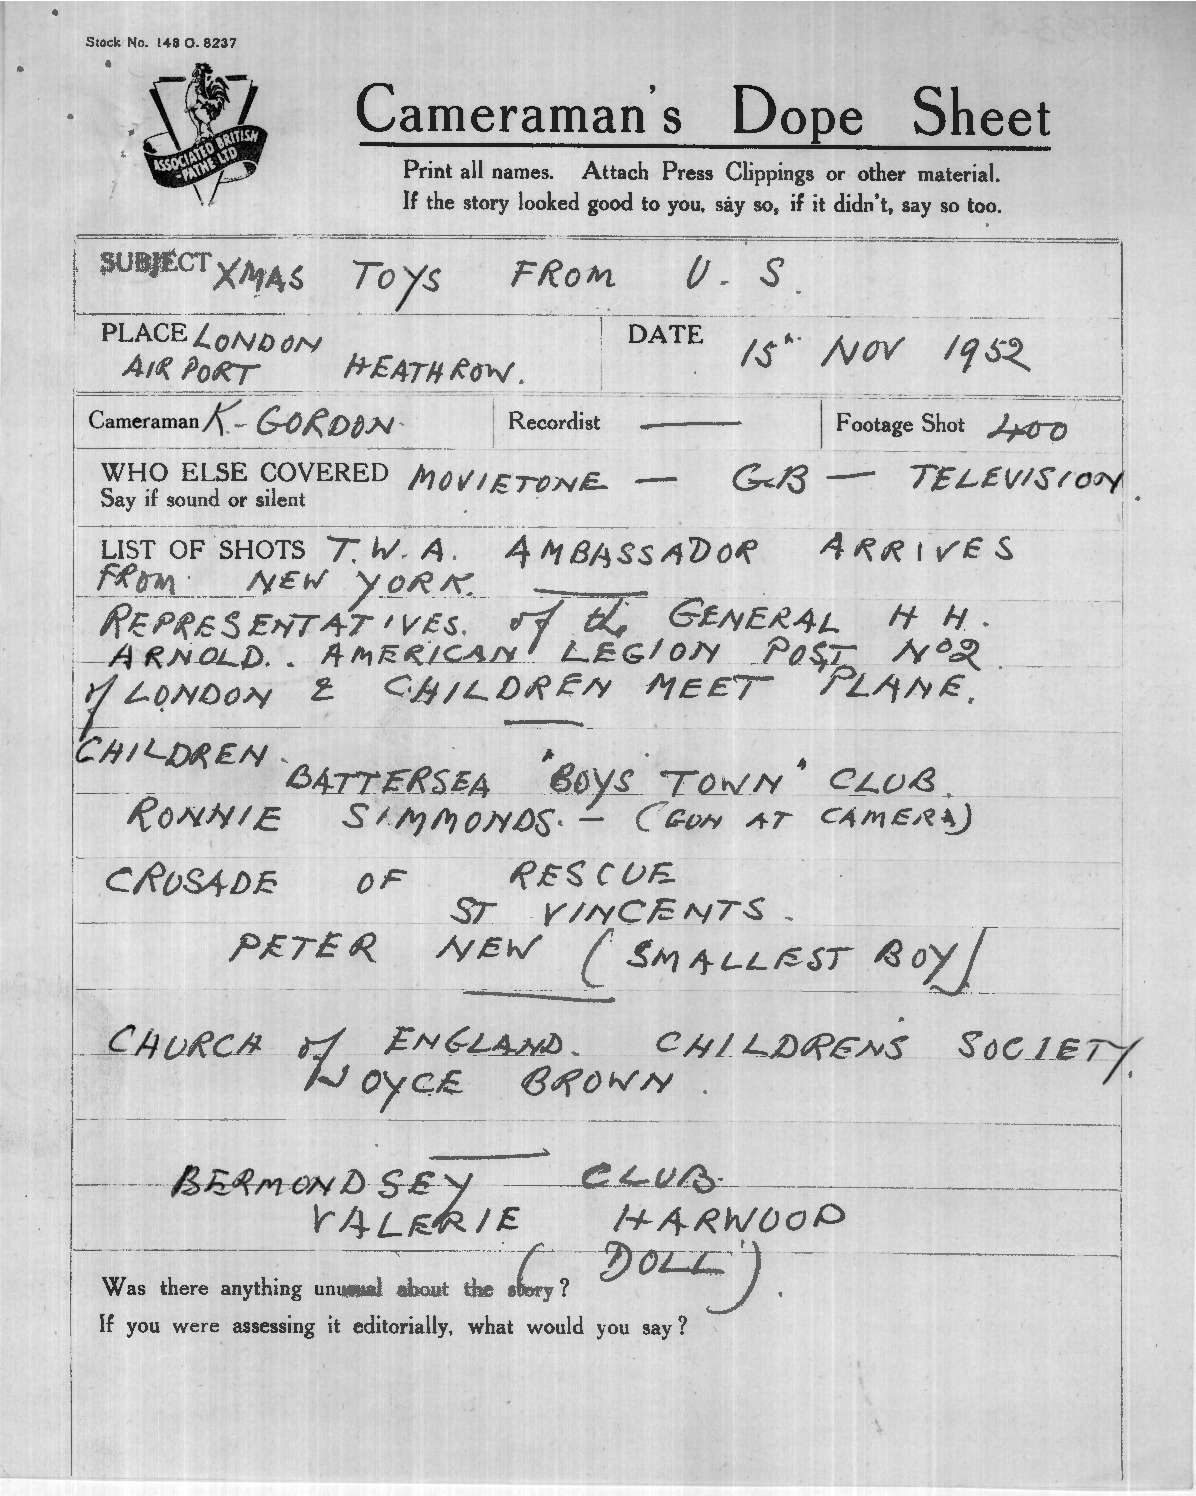 Stock No. 148 O. 8237
ASSOCIATED BRITISH
-PATHE LTD
Cameraman's Dope Sheet
Print all names. Attach Press Clippings or other material.
If the story looked good to you, say so, if it didn't, say so too.
SUBJECT XMAS TOYS FROM U.S.
PLACE LONDON
AIRPORT HEATHROW.
DATE 15th NOV 1952
Cameraman K-GORDON
Recordist —
Footage Shot 400
WHO ELSE COVERED MOVIETONE — GB — TELEVISION.
Say if sound or silent
LIST OF SHOTS T.W.A. AMBASSADOR ARRIVES
FROM NEW YORK.
REPRESENTATIVES. of the GENERAL H H.
ARNOLD.. AMERICAN LEGION POST, No2.
of LONDON & CHILDREN MEET PLANE.
CHILDREN.
BATTERSEA "BOYS TOWN" CLUB.
RONNIE SIMMONDS. — (GUN AT CAMERA)
CRUSADE OF RESCUE
ST VINCENTS.
PETER NEW (SMALLEST BOY)
CHURCH of ENGLAND. CHILDREN'S SOCIETY.
JOYCE BROWN.
BERMONDSEY CLUB.
VALERIE HARWOOD
(DOLL).
Was there anything unusual about the story?
If you were assessing it editorially, what would you say?